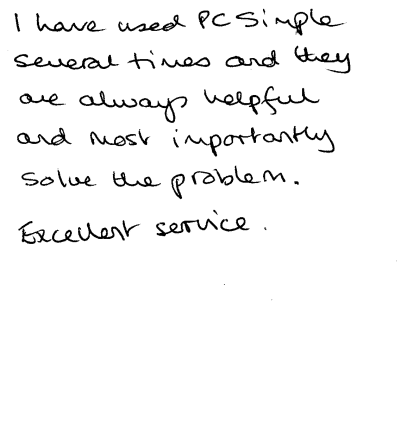 I have used PC Simple
several times and they
are always helpful
and most importantly
solve the problem.
Excellent service.